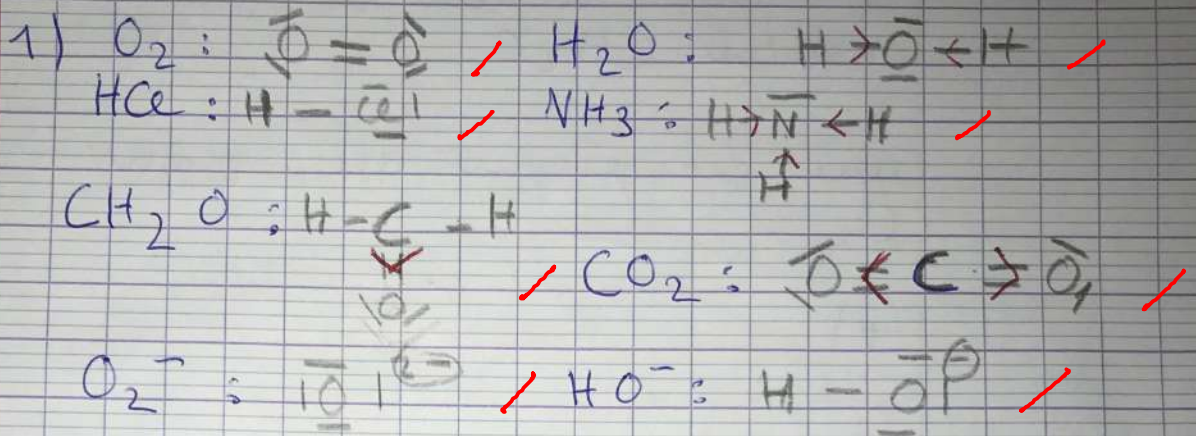 1) O₂ : O = O H₂O : H > O < H
HCl : H – Cl NH₃ : H > N < H
H
CH₂O : H – C – H
CO₂ : O < C > O
O
O₂⁻ : |O|²⁻ HO⁻ : H – O ⊖